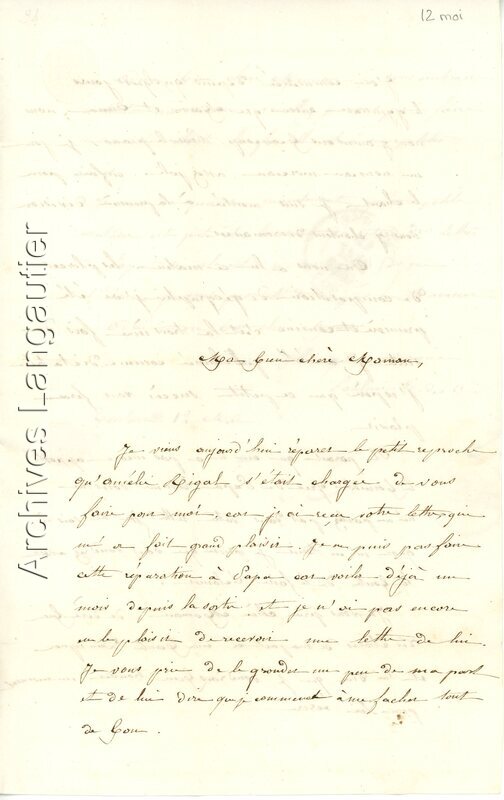 12 mai
Archives Langautier
Ma bien chère Maman,
Je viens aujourd'hui réparer le petit reproche
qu'amélie Rigal s'était chargée de vous
faire pour moi, car j'ai reçu votre lettre, qui
m'a fait grand plaisir. Je ne puis pas faire
cette réparation à Papa car voilà déjà un
mois depuis la sortie et je n'ai pas encore
eu le plaisir de recevoir une lettre de lui.
Je vous prie de le gronder un peu de ma part
et de lui dire que je commence à me facher tout
de bon.